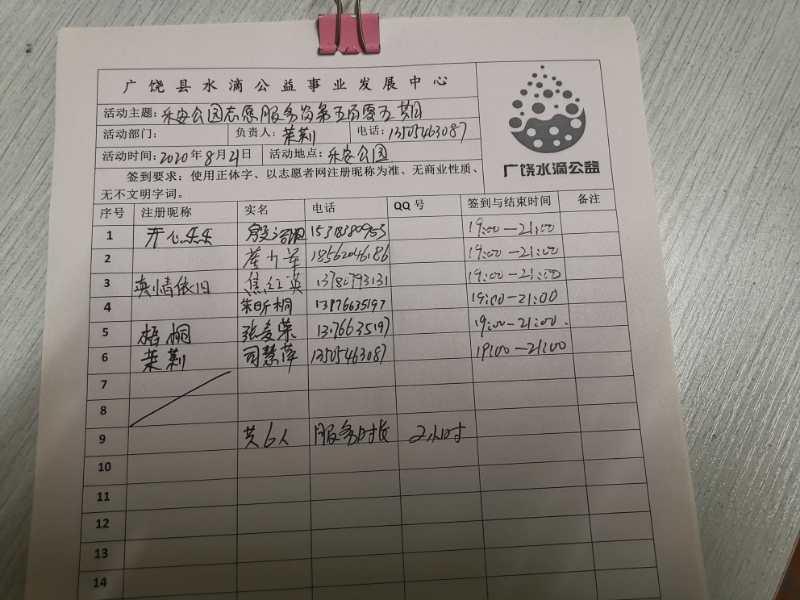 广饶县水滴公益事业发展中心
活动主题: 乐安公园志愿服务岗第五百零五期
活动部门: 负责人: 茉莉 电话: 13505463087
活动时间: 2020年8月21日 活动地点: 乐安公园
签到要求: 使用正体字、以志愿者网注册昵称为准、无商业性质、
无不文明字词。
广饶水滴公益
序号 注册昵称 实名 电话 QQ号 签到与结束时间 备注
1 开心乐乐 19:00—21:00
2 18562046186 19:00—21:00
3 真情依旧 焦红英 13780793131 19:00—21:00
4 朱昕桐 13176635197 19:00—21:00
5 梧桐 张爱荣 13176635197 19:00—21:00.
6 茉莉 司慧萍 13505463087 19:00—21:00
7
8
9 共6人 服务时长 2小时
10
11
12
13
14